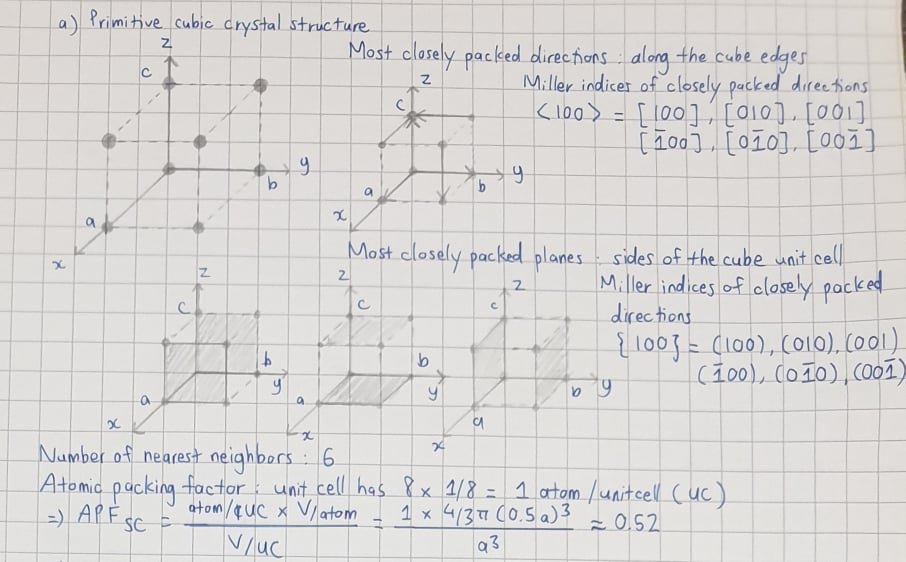 a) Primitive cubic crystal structure
z
c
y
b
a
x
Most closely packed directions : along the cube edges
z
c
y
b
a
x
Miller indices of closely packed directions
⟨100⟩ = [100], [010], [001]
[1̄00], [01̄0], [001̄]
Most closely packed planes : sides of the cube unit cell
Miller indices of closely packed
directions
{100} = (100), (010), (001)
(1̄00), (01̄0), (001̄)
z
c
b
y
a
x
z
c
b
y
a
x
z
c
b
y
a
x
Number of nearest neighbors : 6
Atomic packing factor : unit cell has 8 × 1/8 = 1 atom / unitcell (UC)
=> APF_SC = (atom/UC × V/atom) / (V/UC) = (1 × 4/3 π (0.5a)³) / a³ ≈ 0.52